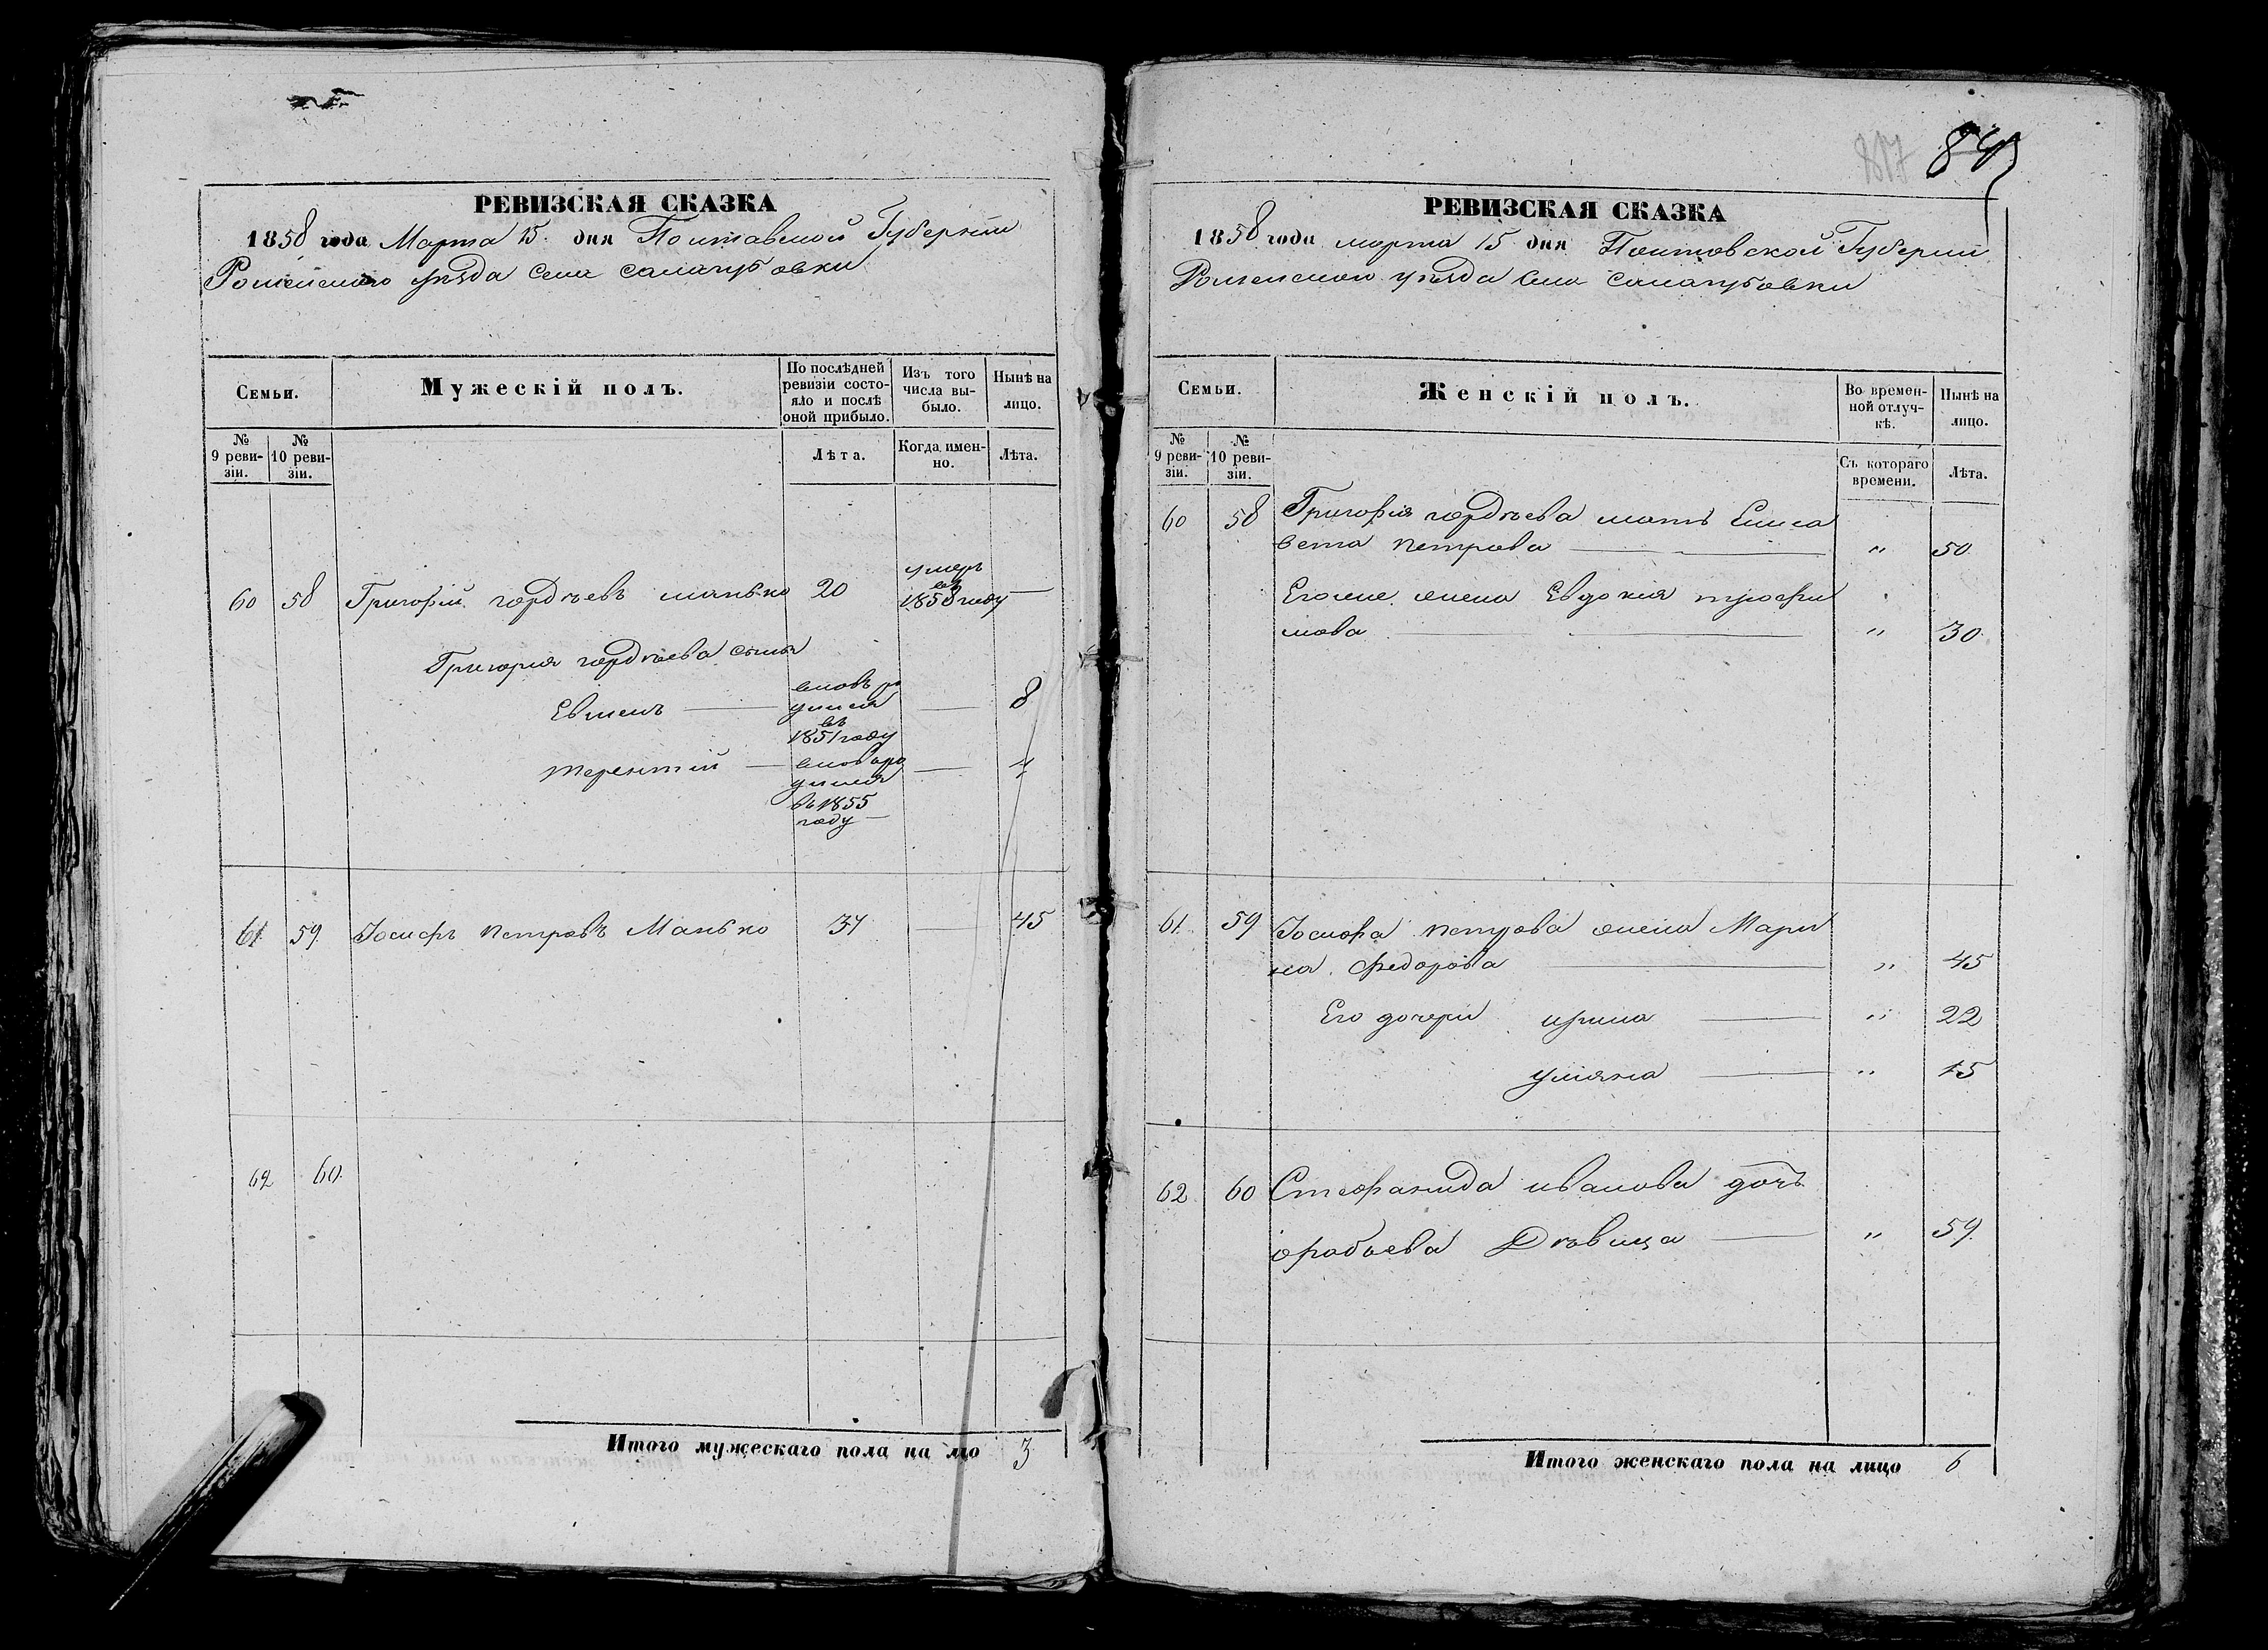 РЕВИЗСКАЯ СКАЗКА
1858 года Марта 15 дня Полтавской Губернии
Роменского уѣзда села салогубовки
Семьи.
Мужескій полъ.
По послѣдней ревизіи состояло и послѣ оной прибыло.
Изъ того числа выбыло.
Нынѣ на лицо.
№ 9 ревизіи.
№ 10 ревизіи.
Лѣта.
Когда именно.
Лѣта.
60 58 Григорій гордѣевъ манько 20 умеръ въ 1858 году —
Григория гордѣева сынья
Евмень — вновь ро
дился — 8
въ
1851 году
терентий — вновь ро — 4
дился
въ 1855
году —
61 59 Іосифъ петровъ Манько 37 — 45
62 60
Итого мужескаго пола на лцо 3
847
РЕВИЗСКАЯ СКАЗКА
1858 года марта 15 дня Полтовской Губернии
Роменскои уѣзда села салогубовки
Семьи.
Женскій полъ.
Во временной отлучкѣ.
Нынѣ на лицо.
№ 9 ревизіи.
№ 10 ревизіи.
Съ котораго времени.
Лѣта.
60 58 Григорія гордѣева мать Елиса
вета петрова — " 50
Егоже жена Евдокия трофи
мова — " 30
61 59 Іосифа петрова жена Мари
на федорова — " 45
Его дочери ирина — " 22
улияна — " 15
62 60 Стефанида иванова дочь
Дѣвица — " 59
Итого женскаго пола на лицо 6